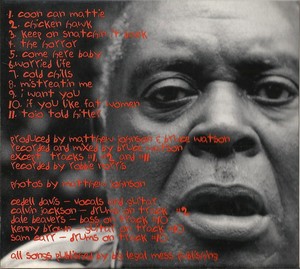 1. coon can mattie
2. chicken hawk
3. keep on snatchin it back
4. the horror
5. come here baby
6. worried life
7. cold chills
8. mistreatin me
9. i want you
10. if you like fat women
11. tojo told hitler
produced by matthew johnson & bruce watson
recorded and mixed by bruce watson
except tracks #1, #2 and #11
recorded by robbie norris
photos by matthew johnson
cedell davis - vocals and guitar
calvin jackson - drums on track #2
dale beavers - bass on track #10
kenny brown - guitar on track #10
sam carr - drums on track #10
all songs published by big legal mess publishing